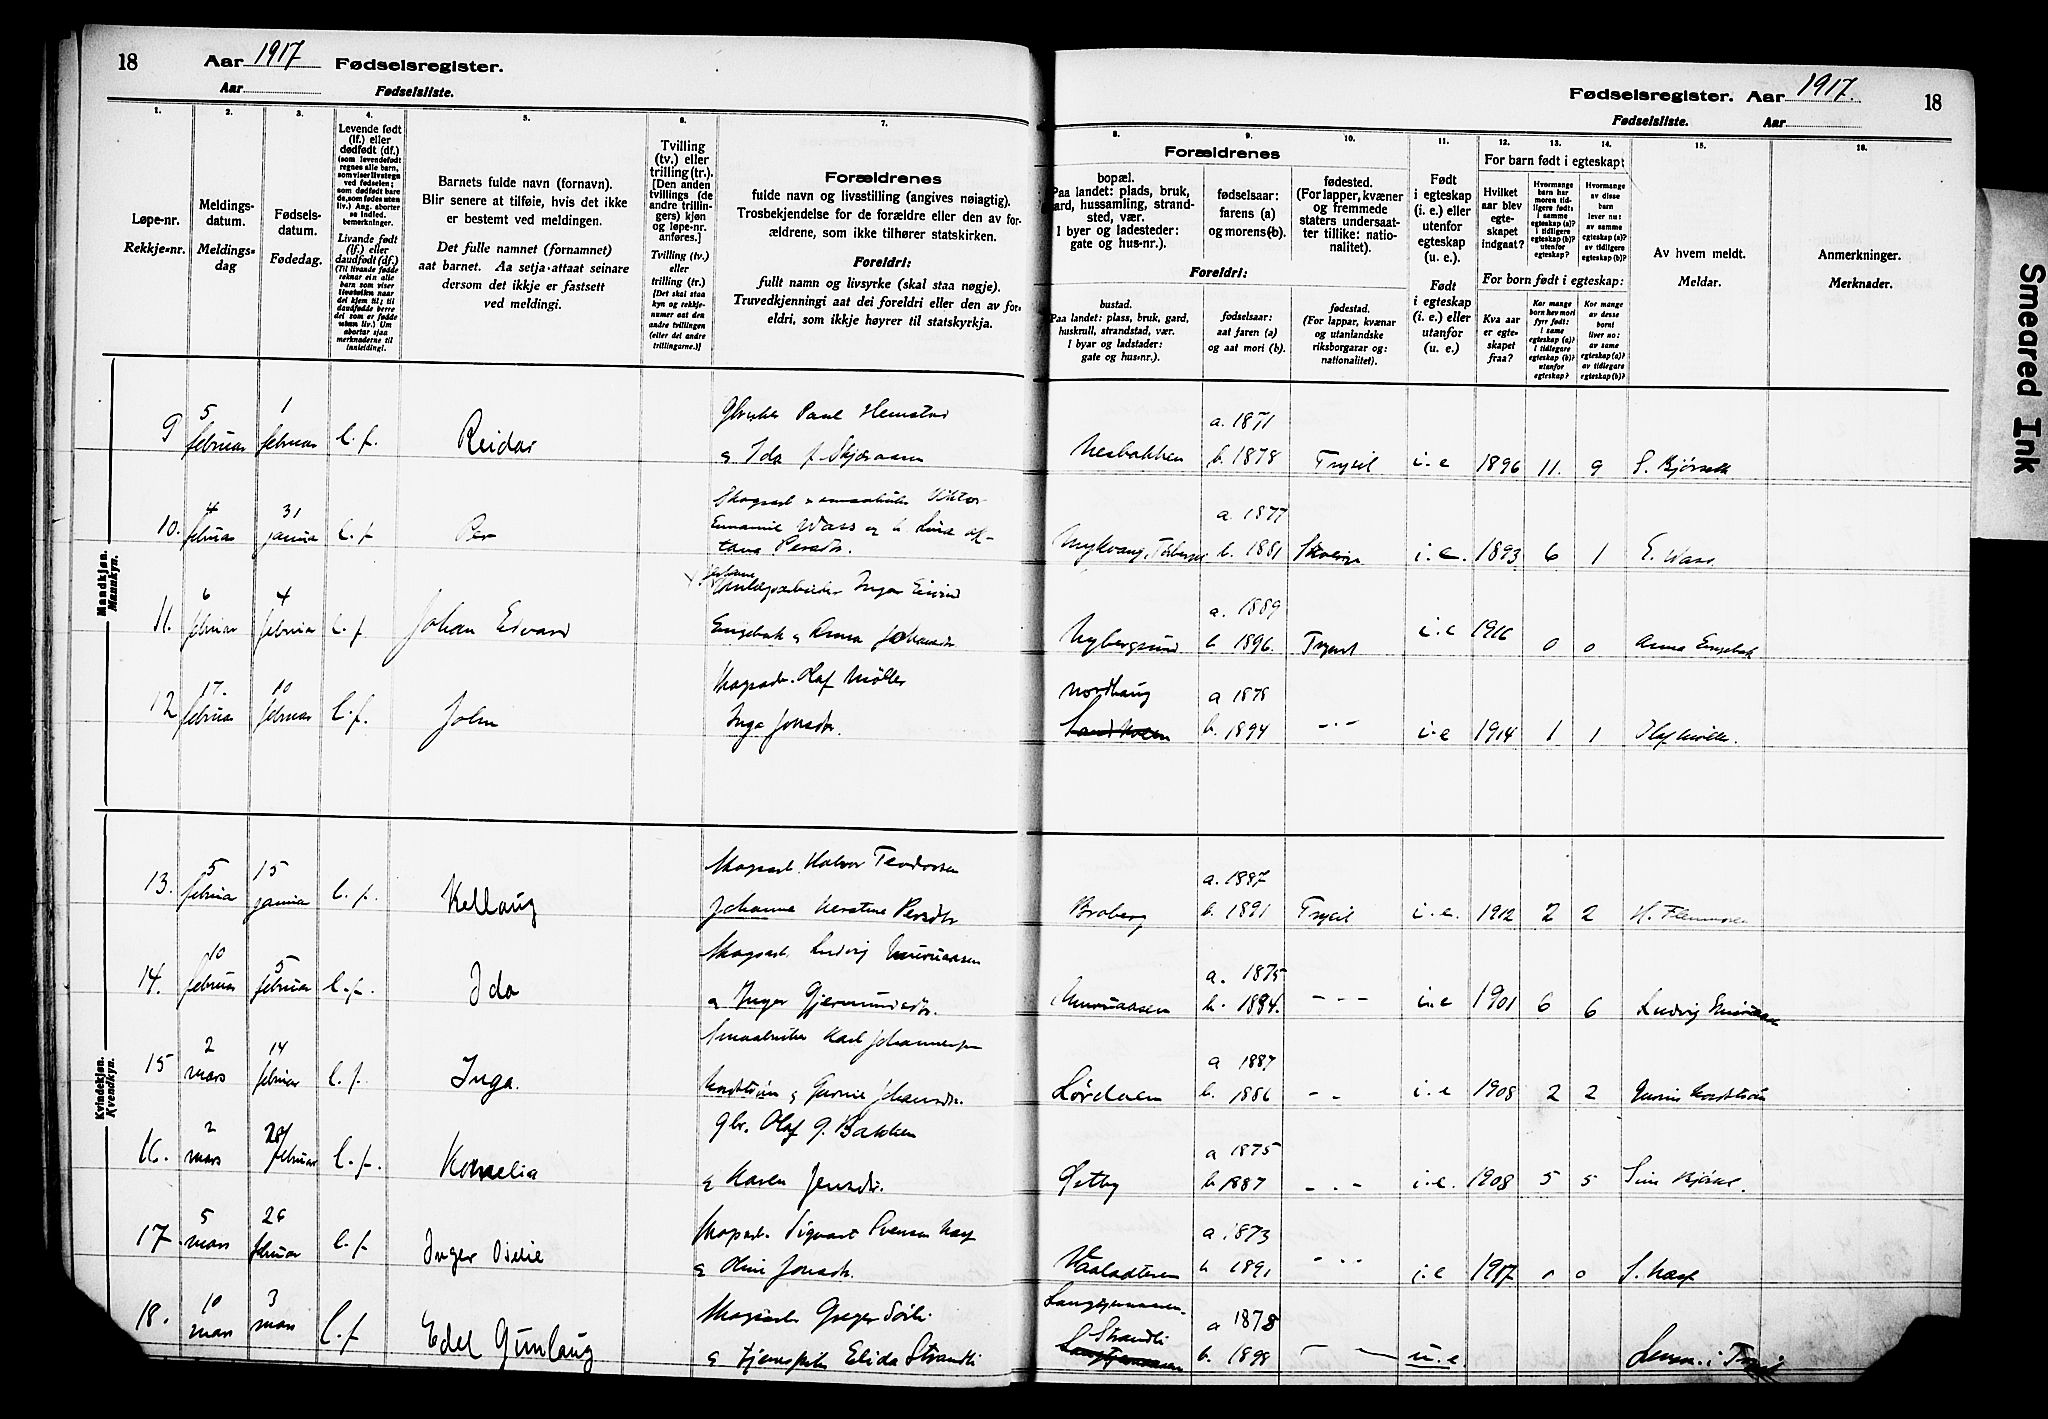 18 Aar 1917 Fødselsregister.
Aar Fødselsliste.
Fødselsregister. Aar 1917. 18
Fødselsliste. Aar
1. 2. 3. 4. 5. 6. 7.
Løpe-nr.
Rekkje-nr.
Meldings-
datum.
Meldings-
dag
Fødsels-
datum.
Fødedag.
Levende født
(lf.) eller
dødfødt (df.)
(som levendefødt
regnes alle barn,
som viser livstegn
ved fødselen;
som dødfødt bare
de, som fødes uten
liv.) Ang. aborter
se indled.
bemerkninger.
Livande født
(lf.) eller
daudfødt (df.)
(Til livande fødde
reknar ein alle
barn som viser
livsteikn naar
dei kjem til; til
daudfødde berre
dei som er fødde
utan liv.) Um
abortar sjaa
merknaderne til
innleiding!.
Barnets fulde navn (fornavn).
Blir senere at tilføie, hvis det ikke
er bestemt ved meldingen.
Det fulle namnet (fornamnet)
aat barnet. Aa setja attaat seinare
dersom det ikkje er fastsett
ved meldingi.
Tvilling
(tv.) eller
trilling (tr.).
[Den anden
tvillings (de
andre trillin-
gers) kjøn
og løpe-nr.
anføres.]
Tvilling (tv.)
eller
trilling (tr.)
[Det skal staa
kyn og rekkje-
numer aat den
andre tvillingen
(eller dei andre
trillingarne.)]
Forældrenes
fulde navn og livsstilling (angives nøiagtig).
Trosbekjendelse for de forældre eller den av for-
ældrene, som ikke tilhører statskirken.
Foreldri:
fullt namn og livsyrke (skal staa nøgje).
Truvedkjenningi aat dei foreldri eller den av for-
eldri, som ikkje høyrer til statskyrkja.
8. 9. 10. 11. 12. 13. 14. 15. 16.
Forældrenes
bopæl.
Paa landet: plads, bruk,
gard, hussamling, strand-
sted, vær.
I byer og ladesteder:
gate og hus-nr.).
fødselsaar:
farens (a)
og morens (b).
fødested.
(For lapper, kvæner
og fremmede
staters undersaat-
ter tillike: natio-
nalitet).
Foreldri:
bustad.
Paa landet: plass, bruk, gard,
huskrull, strandstad, vær.
I byar og ladstader:
gate og hus-nr.).
fødselsaar:
aat faren (a)
og aat mori (b).
fødestad.
(For lappar, kvænar
og utanlandske
riksborgarar og:
nationalitet).
Født
i egteskap
(i. e.) eller
utenfor
egteskap
(u. e.).
Født
i egteskap
(i. e.) eller
utanfor
(u. e.)
For barn født i egteskap:
Hvilket
aar blev
egte-
skapet
indgaat?
Hvormange
barn har
moren tid-
ligere født:
i samme
egteskap (a)?
i tidligere
egteskap (b)?
utenfor
egteskap?
Hvormange
av disse
barn
lever nu:
av samme
egteskap (a)?
av tidligere
egteskap (b)?
For born født i egteskap:
Kva aar
er egte-
skapet
fraa?
Kor mange
born hev mori
fyrr født:
i same
egteskap (a)?
i tidlegare
egteskap (b)?
utanfor
egteskap?
Kor mange
av desse
borni
liver no:
av same
egteskap (a)?
av tidlegare
egteskap (b)?
Av hvem meldt.
Meldar.
Anmerkninger.
Merknader.
Mandkjøn.
Mannkyn.
9 5 februar 1 februar l. f. Reidar Paul Hemstad
& Ida f. Skjæraasen a. 1871
b. 1878 Trysil i. e 1896 11. 9
10. 4 februar 31 januar l. f. Per Viktor
Emanuel Wass og h. Lina
Persdtr. a. 1877
b. 1881 i. e. 1893 6 1 E. Wass
11. 6 februar 4 februar l. f. Johan Edvard Inger Eivind
Engebak & Anna Johansdtr Nybergsund a. 1889
b. 1896. Trysil i. e 1916 0 0 Anna Engebak
12 17. februar 10 februar l. f. John Skogsarb. Olaf Møller
Inga Jonsdtr. Nordhaug a 1878
b. 1894 - " - i. e 1914 1 1 Olaf Møller.
Kvindekjøn.
Kvendkyn.
13. 5 februar 15 januar l. f. Kellaug Skogsarb. Halvor Teodorsen
Johanne Kerstine Persdtr Broberg a. 1887
b. 1891 Trysil i. e. 1912 2 2
14. 10 februar 5 februar l. f. Ida Skogsarb. Ludvig
& Inger Gjermundsdtr. a. 1875
b. 1884. - " - i. e 1901 6 6 Ludvig
15 2 mars 14 februar l. f. Inga. Karl Johannessen
& Gurine Johansdtr. Lørdalen a 1887
b. 1886 - " - i. e 1908 2 2
16. 2 mars 28/ februar l. f. Kornelia gbr. Olaf G. Bakken
& Karen Jensdtr. Galtby a 1875
b. 1887 - " - i. e. 1908 5 5
17. 5 mars 26 februar l. f. Inger Otilie Skogsarb. Sigvart Svensen Næss
& Oline Jonsdtr. a. 1873
b 1891 - " - i. e 1917 0 0 S. Næss
18. 10 mars 3 mars l. f. Edel Gunlaug Skogsarb. Greger Sørli
& tjenestpike Elida Strandli Strandli a 1878
b. 1898 - " - u. e Lensm. i Trysil
Smeared Ink